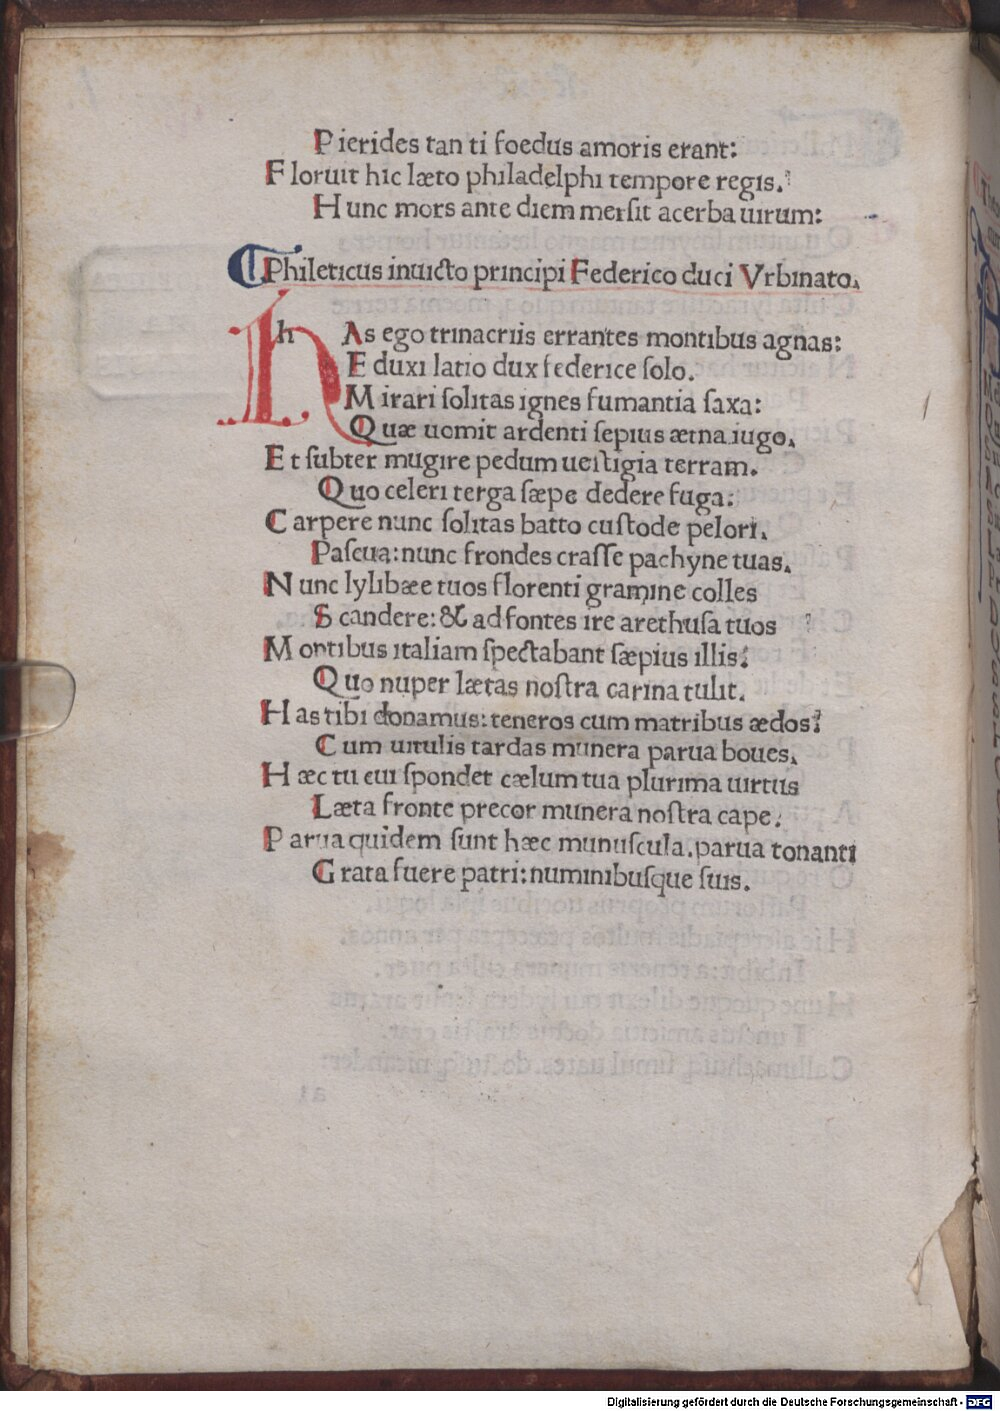 Pierides tan ti foedus amoris erant:
Floruit hic læto philadelphi tempore regis.
Hunc mors ante diem mersit acerba uirum:
Phileticus inuicto principi Federico duci Vrbinato.
h As ego trinacriis errantes montibus agnas:
Eduxi latio dux federice solo.
Mirari solitas ignes fumantia saxa:
Quæ uomit ardenti sepius ætna iugo.
Et subter mugire pedum uestigia terram.
Quo celeri terga sæpe dedere fuga:
Carpere nunc solitas batto custode pelori.
Pascua: nunc frondes crasse pachyne tuas.
Nunc lylibæe tuos florenti gramine colles
Scandere: & ad fontes ire arethusa tuos
Montibus italiam spectabant sæpius illis:
Quo nuper lætas nostra carina tulit.
Has tibi donamus: teneros cum matribus ædos:
Cum uitulis tardas munera parua boues.
Hæc tu cui spondet cælum tua plurima uirtus
Læta fronte precor munera nostra cape:
Parua quidem sunt hæc munuscula. parua tonanti
Grata fuere patri: numinibusque suis.
Digitalisierung gefördert durch die Deutsche Forschungsgemeinschaft - DFG